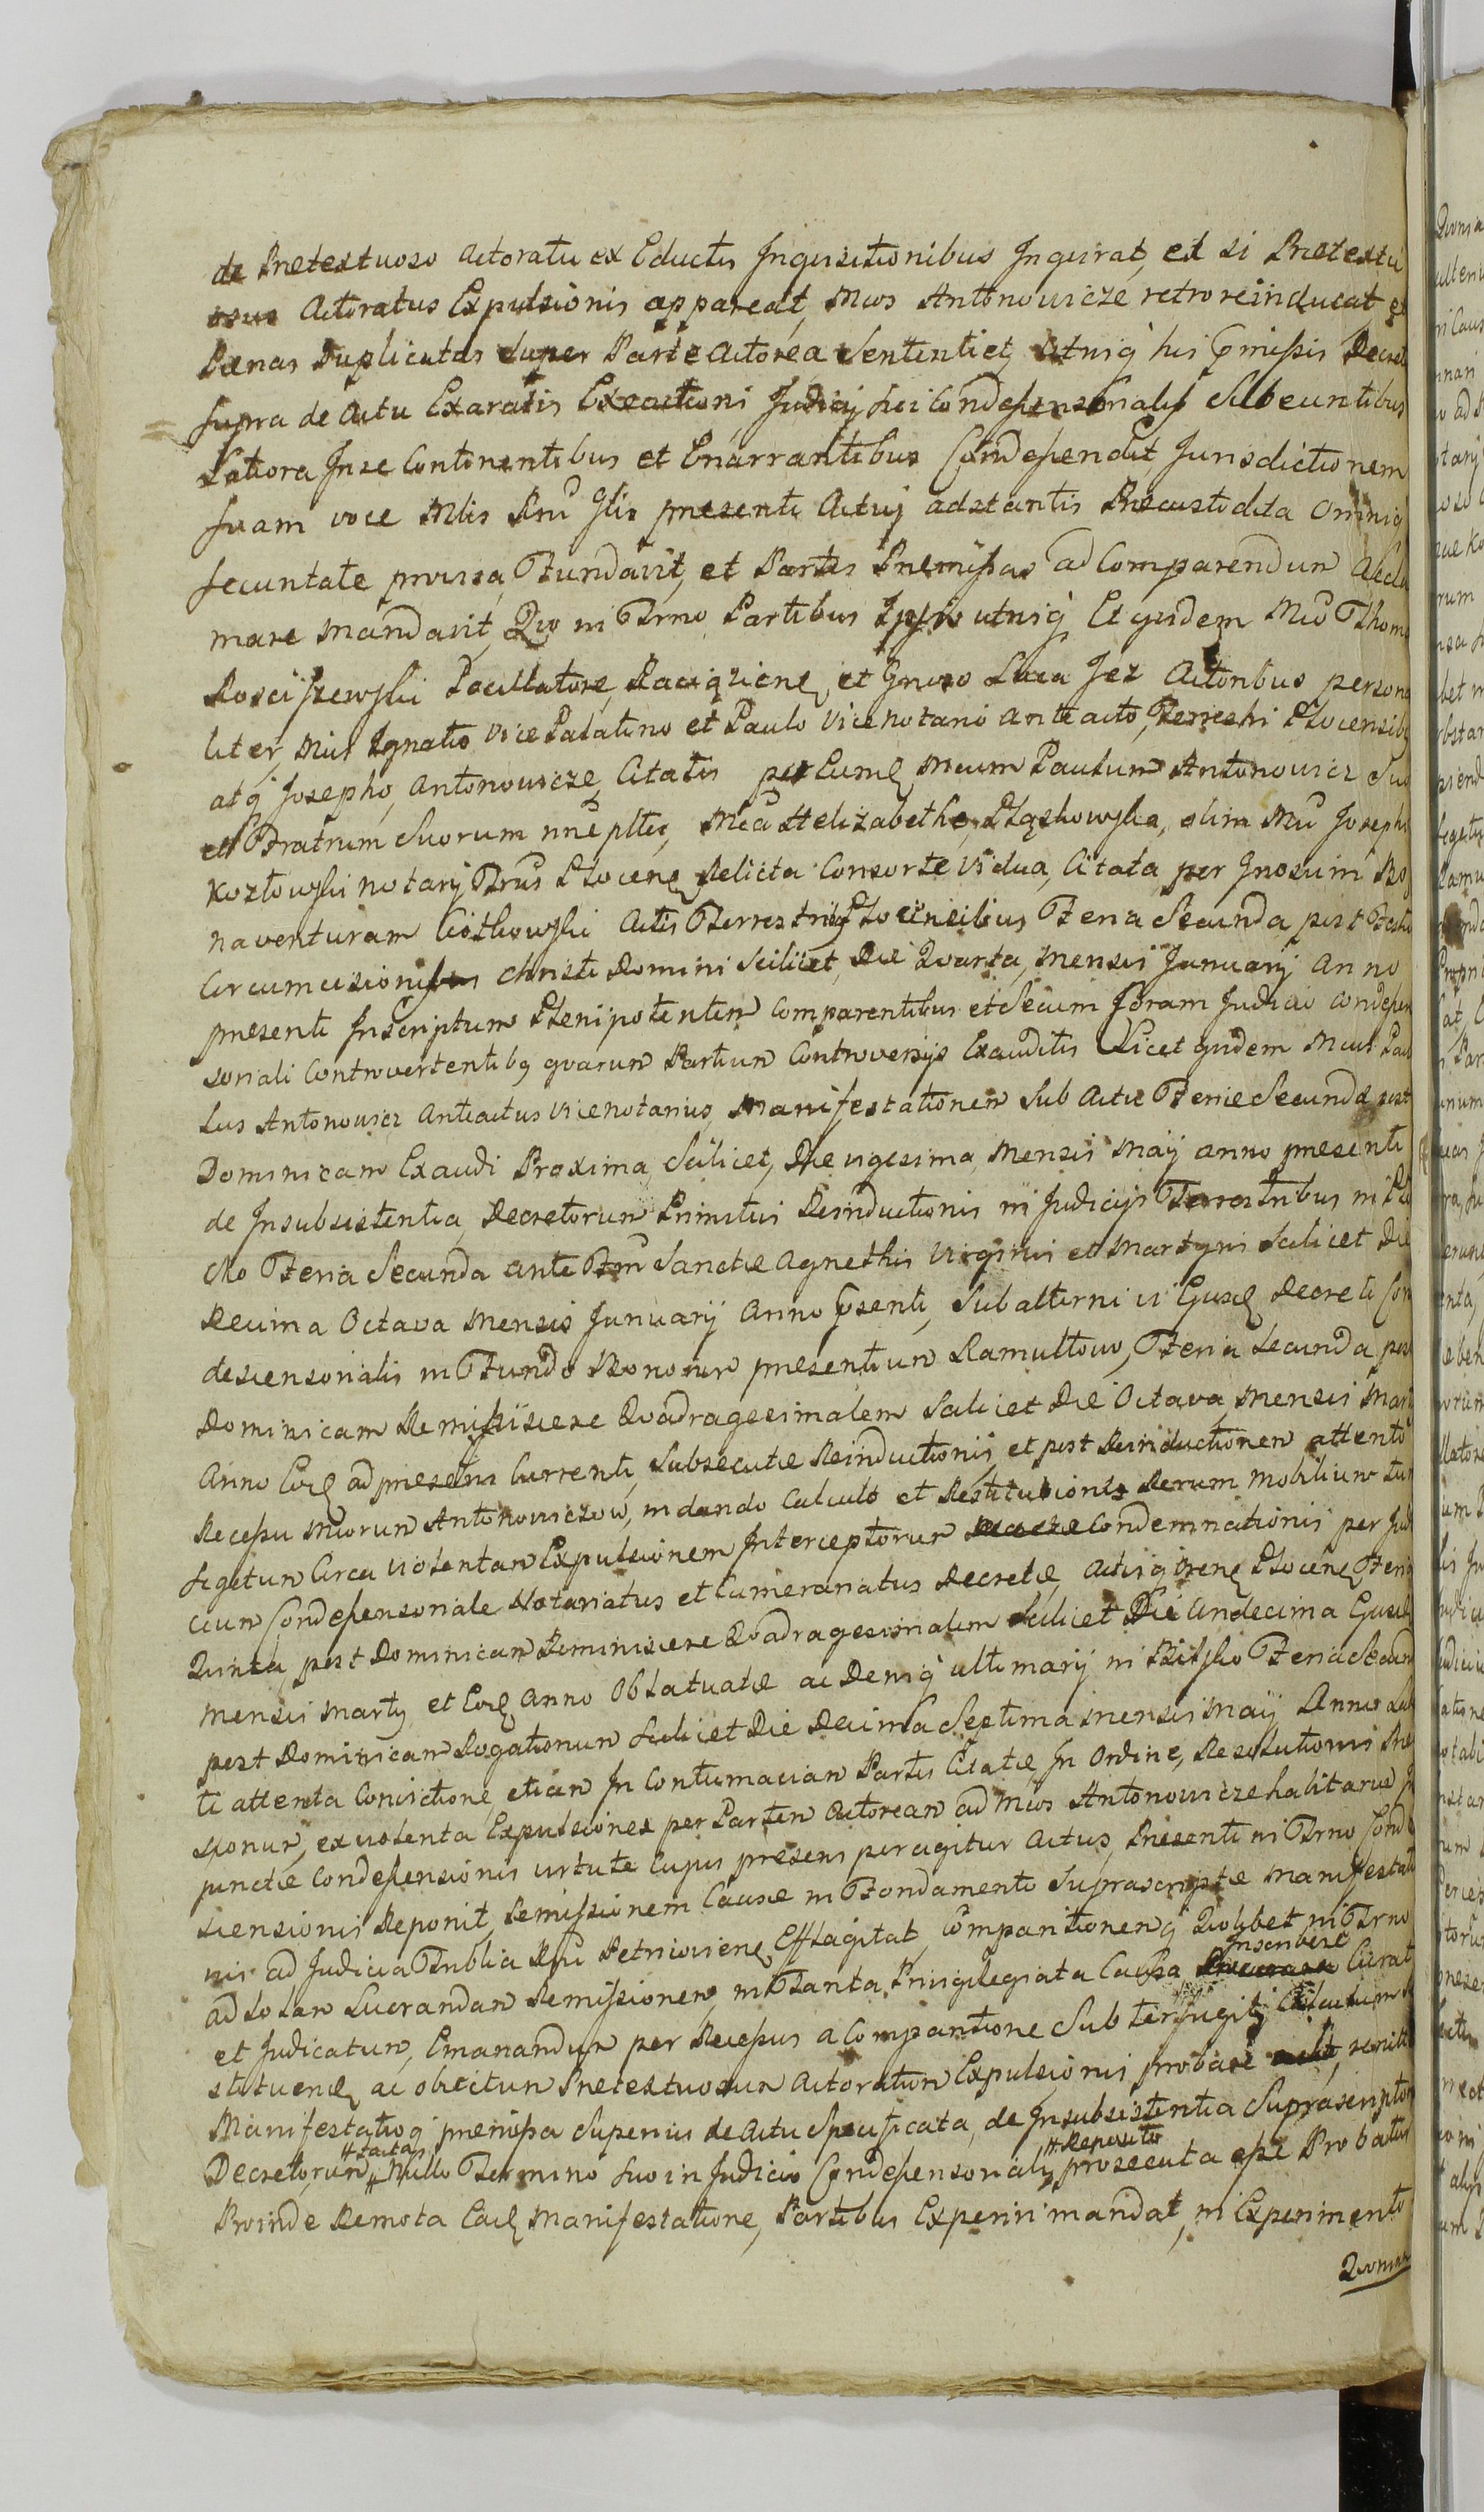 de Pretextuoso Actoratu ex Eductis Inquisitionibus Inquirat, et si Pretextu
osus Actoratus Expulsionis appareat, Mcos Antonowicze retroreinducat et
Pænas Duplicatas super Parte Actorea Sententiet, Utrisq his Pmissis Decret
supra de Actu Exaratis Exactioni Judicij sui Condescensorialis Subeuntibus
Latiora Inse Continentibus et Enarrantibus Condescendit, Jurisdictionem
suam voce Mlis Rni Glis presenti Actuj adstantis Precustodita Omniq
securitate previsa, Fundavit, et Partes Premissas ad Comparendum Acclo
mare mandavit, Quo in Trno Partibus Ipsis utrisq Et quidem Mco Thoma
Rosciszewski Pocillatore, Raciązien, et Gnroso Luca Jez Actoribus persona
liter, Mcis Ignatio Vice Palatino et Paulo Vicenotario anteacto, Terrestri Plocensibq
atq Josepho, Antonowicze, Citatis per Eund Mcum Paulum Antonowicz Suo
et Fratrum Suorum nne plter, Mca Helizabetha, Pląskowska, olim Mci Josephi
Kozłowski notarij Trris Plocen Relicta Consorte Vidua, Citata, per Gnosum Bo
naventuram Ciołkowski Actis Terrestribq Plocensibus Feria Secunda post Festu
Circumcisionis Christi Domini Scilicet, Die Quarta, Mensis Januarij Anno
presenti Inscriptum Plenipotentem Comparentibus et Secum Coram Judicio Condescen
soriali Controvertentibq quarum Partium Controversijs Exauditis Licet quidem Mcus Pau
lus Antonowicz Anteactus Vicenotarius, Manifestationem Sub Actu Feriæ Secundæ post
Dominicam Exaudi Proxima, Scilicet, Die vigesima Mensis Maij anno presenti
de Insubsistentia, Decretorum Primitus Reinductionis in Judicijs Terrestribus in Plo
cko Feria Secunda ante Ftm Sanctæ Agnethis Virginis et Martyris Scilicet Die
Decima Octava Mensis Januarij Anno Psenti, Subalterni vi Eiusd Decreti Con
descensorialis in Fundo Bonorum presentium Ramułtowo, Feria Secunda post
Dominicam Reminiscere Quadragesimalem Scilicet Die Octava Mensis Martij
Anno Eod ad presens Currenti, Subsecutæ Reinductionis, et post Reinductionem attento
Recessu Mcorum Antonowiczow, in dando Calculo et Restitutionis Rerum Mobilium tum
segetum Circa Violentam Expulsionem Interceptorum Condemnationis per Judi
cium Condescensoriale Notariatus et Cameranatus Decretæ, Actisq tren Plocen Feria
Quinta, post Dominicam Reminiscere Quadragesimalem Scilicet Die Undecima Eiusd
Mensis Martij et Eod Anno Oblatuatæ ac Deniq ultimarij in Bielsko Feria Secund
post Dominicam Rogationum Scilicet Die Decima Septima Mensis Maij Anno
ti attenta Convictione etiam In Contumaciam Partis Citatæ In Ordine, Resolutionis
sionum, ex violenta Expulsiones per Partem Actoream ad Mcos Antonowicze habitarum
junctæ Condescensionis virtute Cujus presens peragitur Actus, Presenti in Trno Cond
scensionis Reponit, Remissionem Causæ in Fondamento Suprascriptæ Manifestati
nis ad Judicia Publica Rni Petricovien, Efflagitat, Comparitionemq Quolibet in Trno
ad solam Lucrandam Remissionem, in Tanta Privilegiata Causa Inscribere Curat
et Judicatum, Emanandum per Recessus a Comparitione Subterfugit, Calculum
stituend ac obiectum Pretextuosum Actoratum Expulsionis probare renuit
Manifestatioq premissa Superius de Actu Specificata, de Insubsistentia Suprascriptor
Decretorum # facta # Nullo Termino suo in Judicio Condescensoriali # Reperitur prosecuta esse Probatur
Proinde Remota Ead Manifestatione, Partibus Experiri mandat, in Experimento
Quoniam